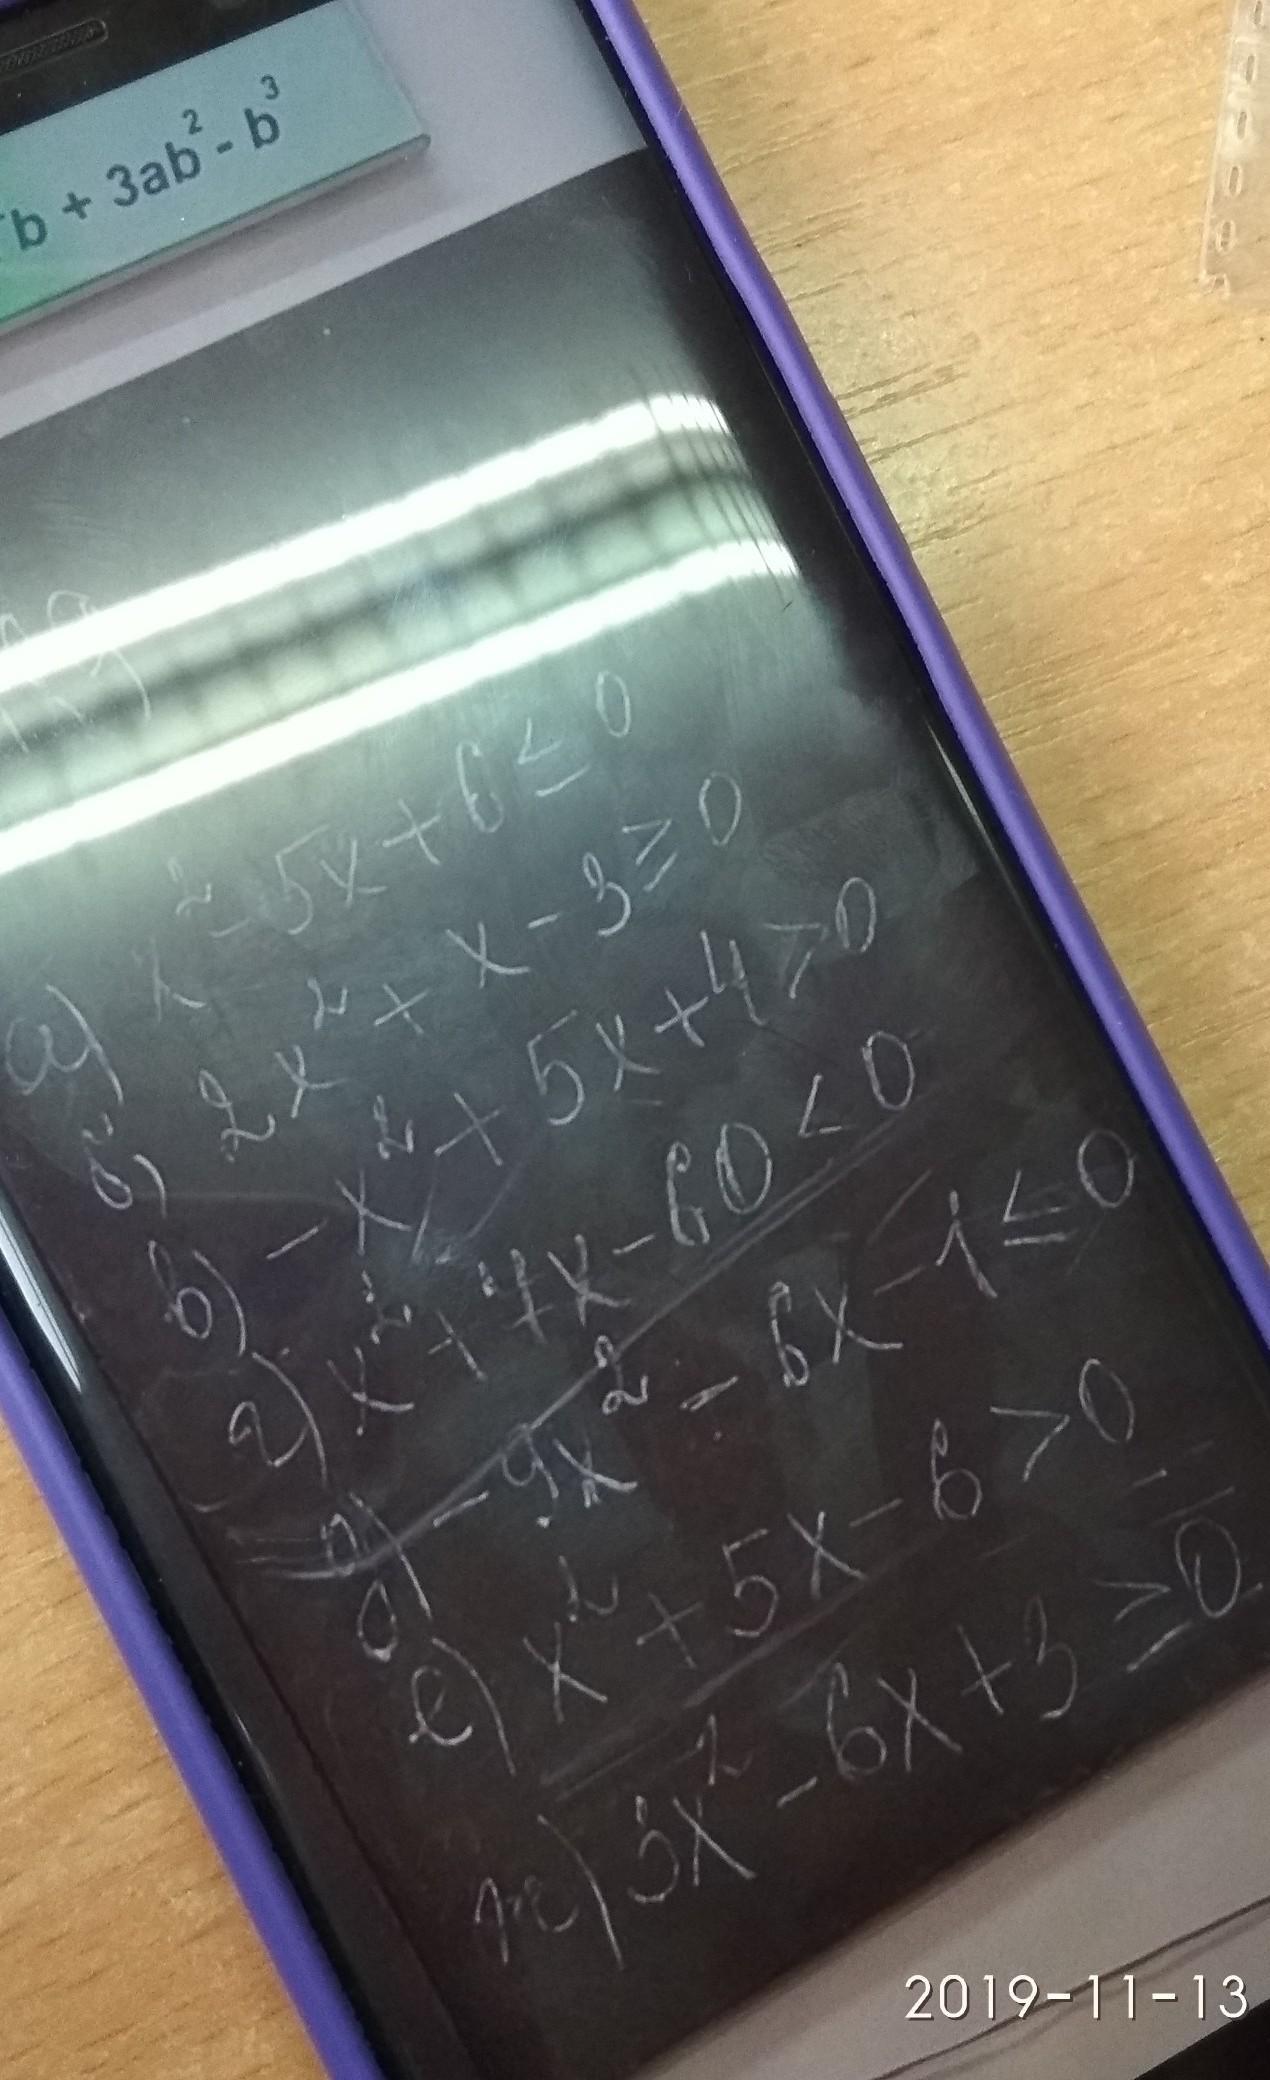 b + 3ab² - b³
а) x² - 5x + 6 ≤ 0
б) 2x² + x - 3 ≥ 0
в) - x² + 5x + 4 > 0
г) x² + 7x - 60 < 0
д) - 9x² - 6x - 1 ≤ 0
е) x² + 5x - 6 > 0
ж) 3x² - 6x + 3 ≥ 0
2019-11-13